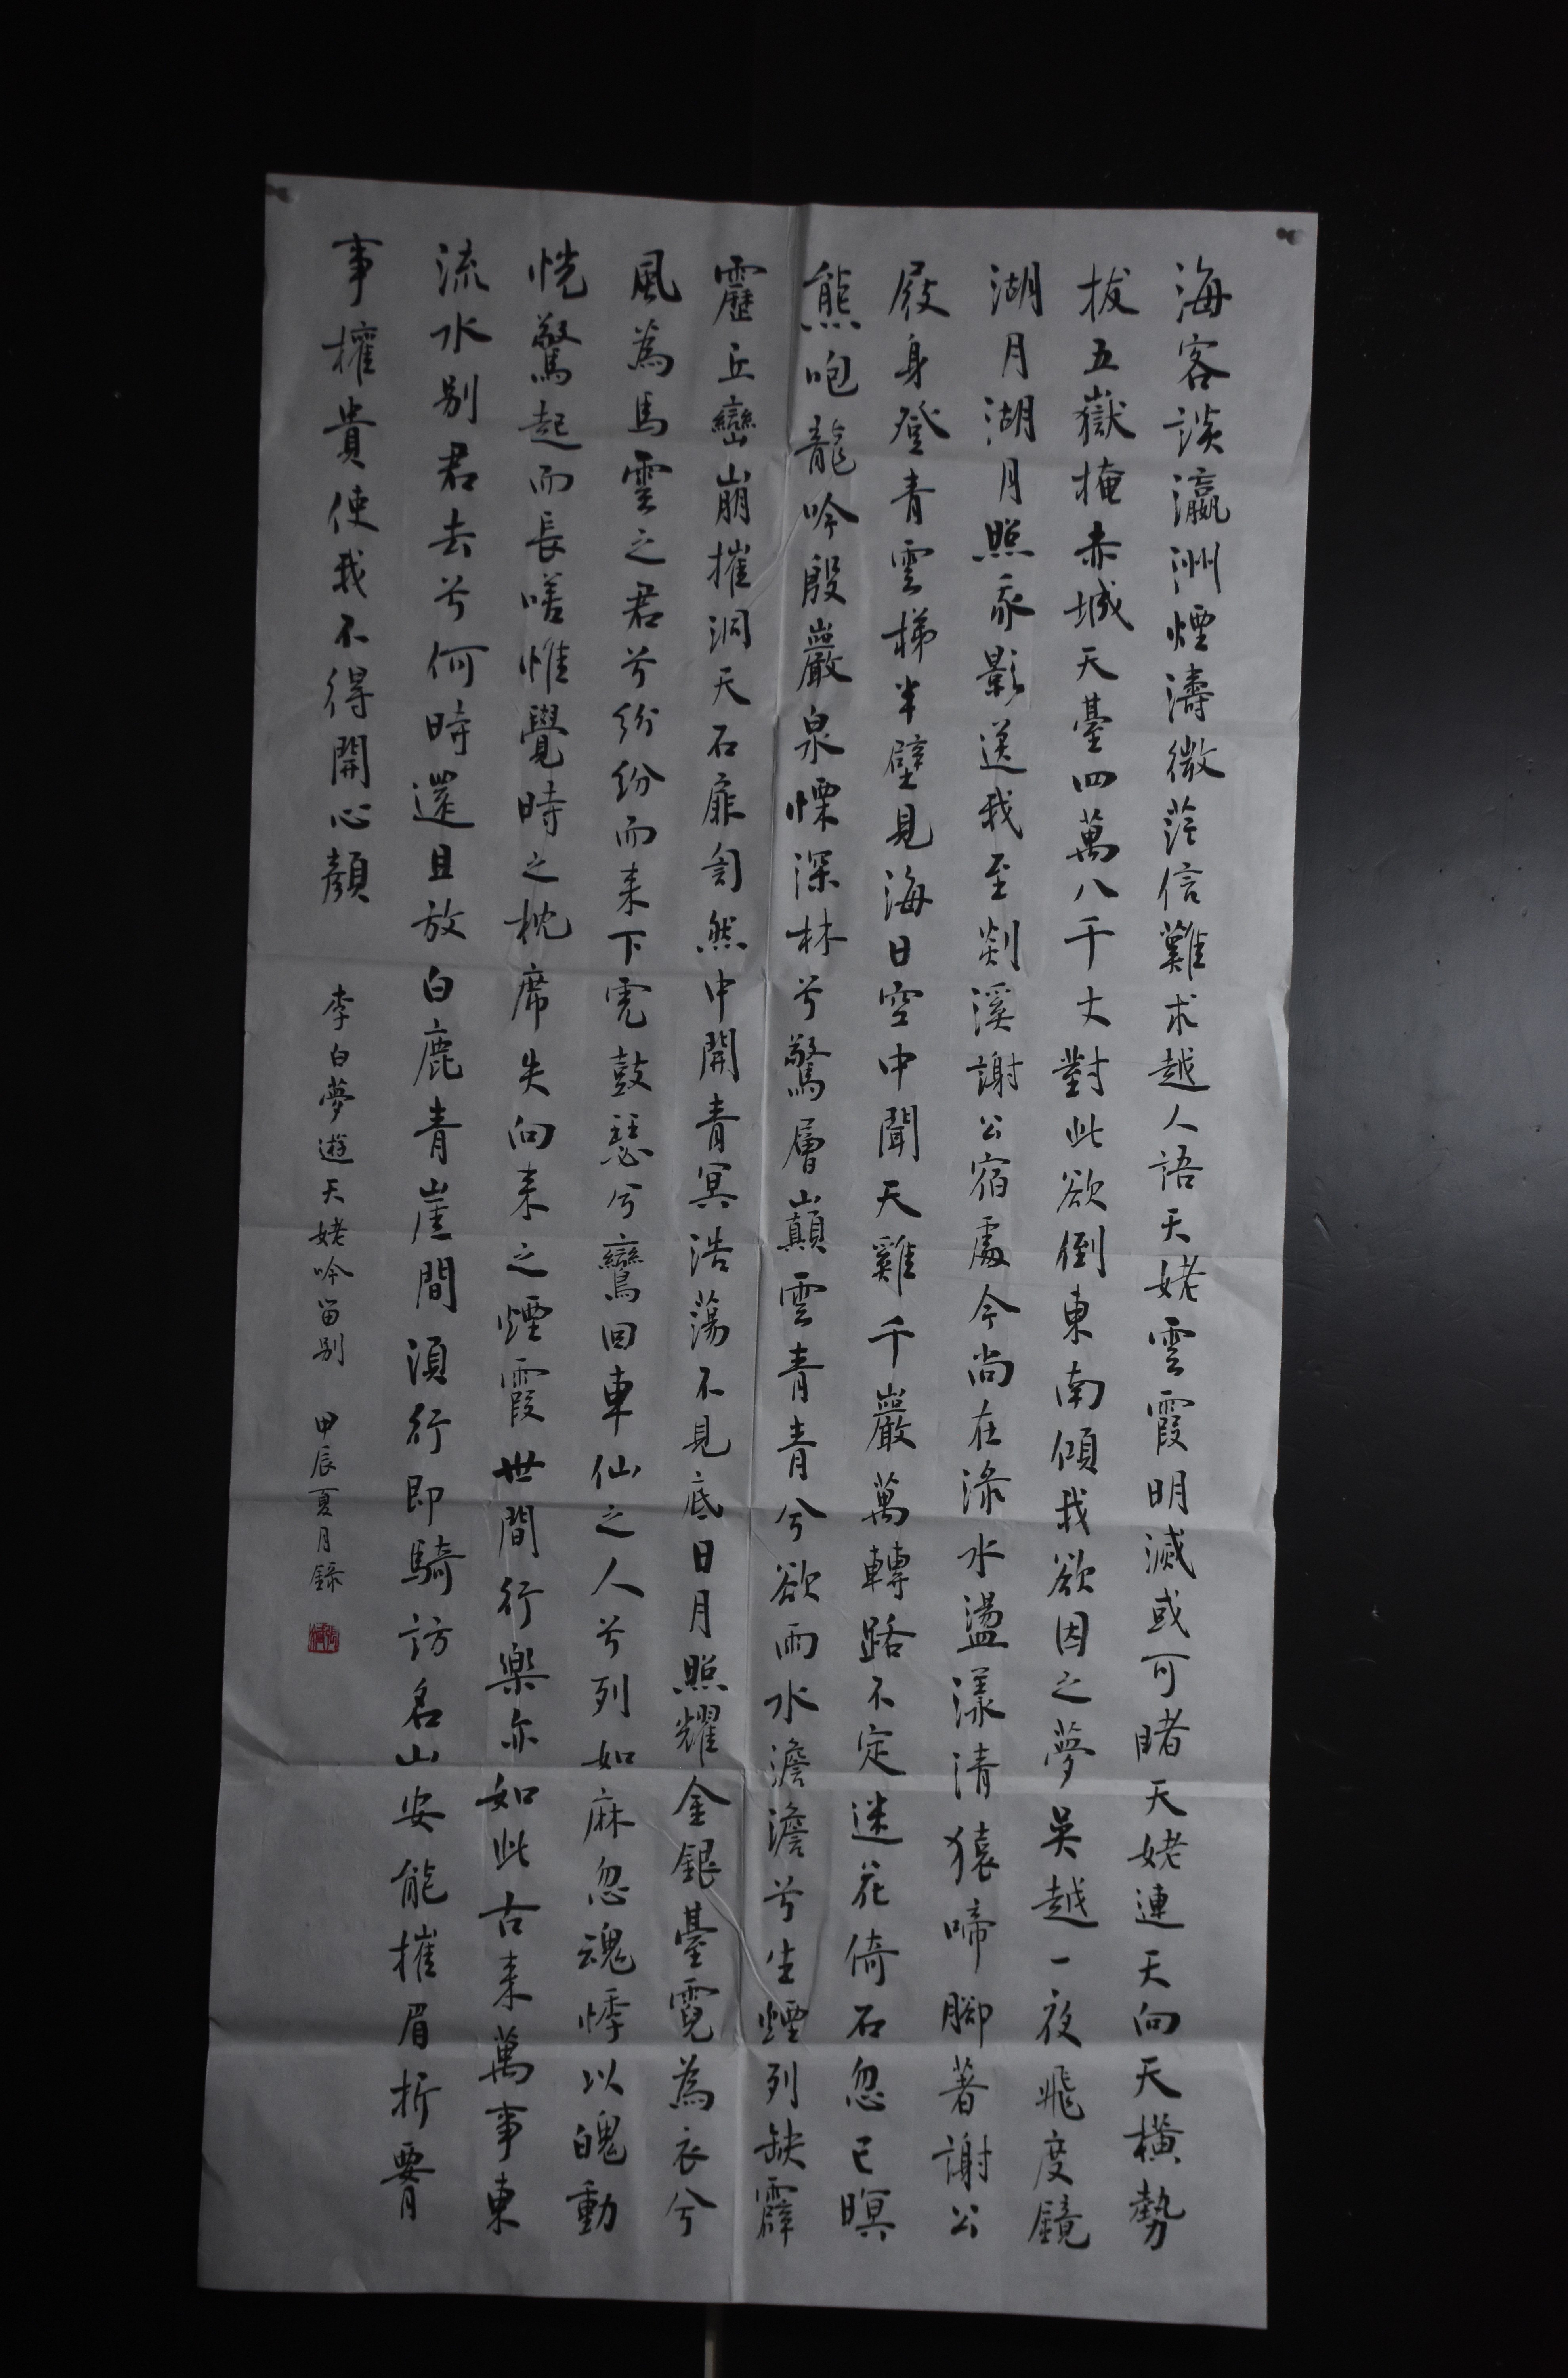 海客談瀛洲煙濤微茫信難求越人語天姥雲霞明滅或可睹天姥連天向天橫勢
拔五嶽掩赤城天臺四萬八千丈對此欲倒東南傾我欲因之夢吳越一夜飛度鏡
湖月湖月照我影送我至剡溪謝公宿處今尚在淥水盪漾清猿啼腳著謝公
屐身登青雲梯半壁見海日空中聞天雞千巖萬轉路不定迷花倚石忽已暝
熊咆龍吟殷巖泉慄深林兮驚層巔雲青青兮欲雨水澹澹兮生煙列缺霹
靂丘巒崩摧洞天石扉訇然中開青冥浩蕩不見底日月照耀金銀臺霓為衣兮
風為馬雲之君兮紛紛而来下虎鼓瑟兮鸞回車仙之人兮列如麻忽魂悸以魄動
恍驚起而長嗟惟覺時之枕席失向来之煙霞世間行樂亦如此古来萬事東
流水别君去兮何時還且放白鹿青崖間須行即騎訪名山安能摧眉折腰
事權貴使我不得開心顏
李白夢遊天姥吟留别 甲辰夏月錄